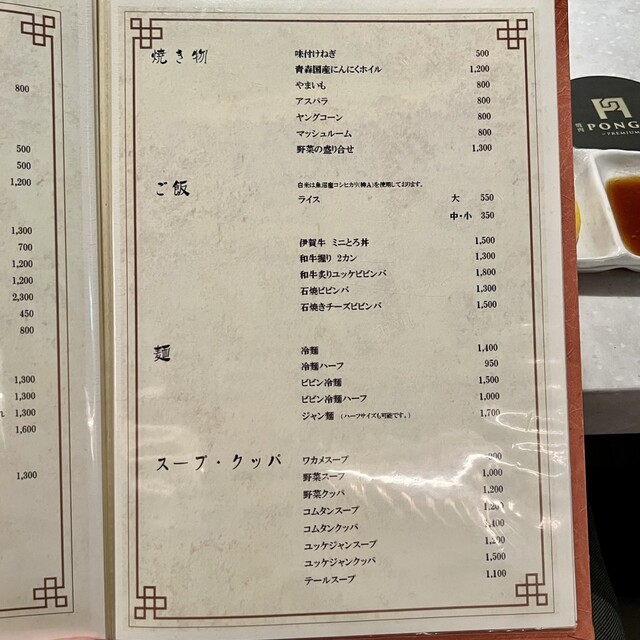 800
500
500
1,200
1,300
700
1,200
1,200
2,300
450
800
1,300
1,300
1,300
1,600
1,300
焼き物
味付けねぎ 500
青森国産にんにくホイル 1,200
やまいも 800
アスパラ 800
ヤングコーン 800
マッシュルーム 800
野菜の盛り合せ 1,300
ご飯
白米は魚沼産コシヒカリ(特A)を使用しております。
ライス 大 550
中・小 350
伊賀牛 ミニとろ丼 1,500
和牛握り 2カン 1,300
和牛炙りユッケビビンバ 1,800
石焼ビビンバ 1,300
石焼きチーズビビンバ 1,500
麺
冷麺 1,400
冷麺ハーフ 950
ビビン冷麺 1,500
ビビン冷麺ハーフ 1,000
ジャン麺 (ハーフサイズも可能です。) 1,700
スープ・クッパ
ワカメスープ
野菜スープ 1,000
野菜クッパ 1,200
コムタンスープ 1,200
コムタンクッパ 1,400
ユッケジャンスープ 1,200
ユッケジャンクッパ 1,500
テールスープ 1,100
焼肉 PONG
PREMIUM